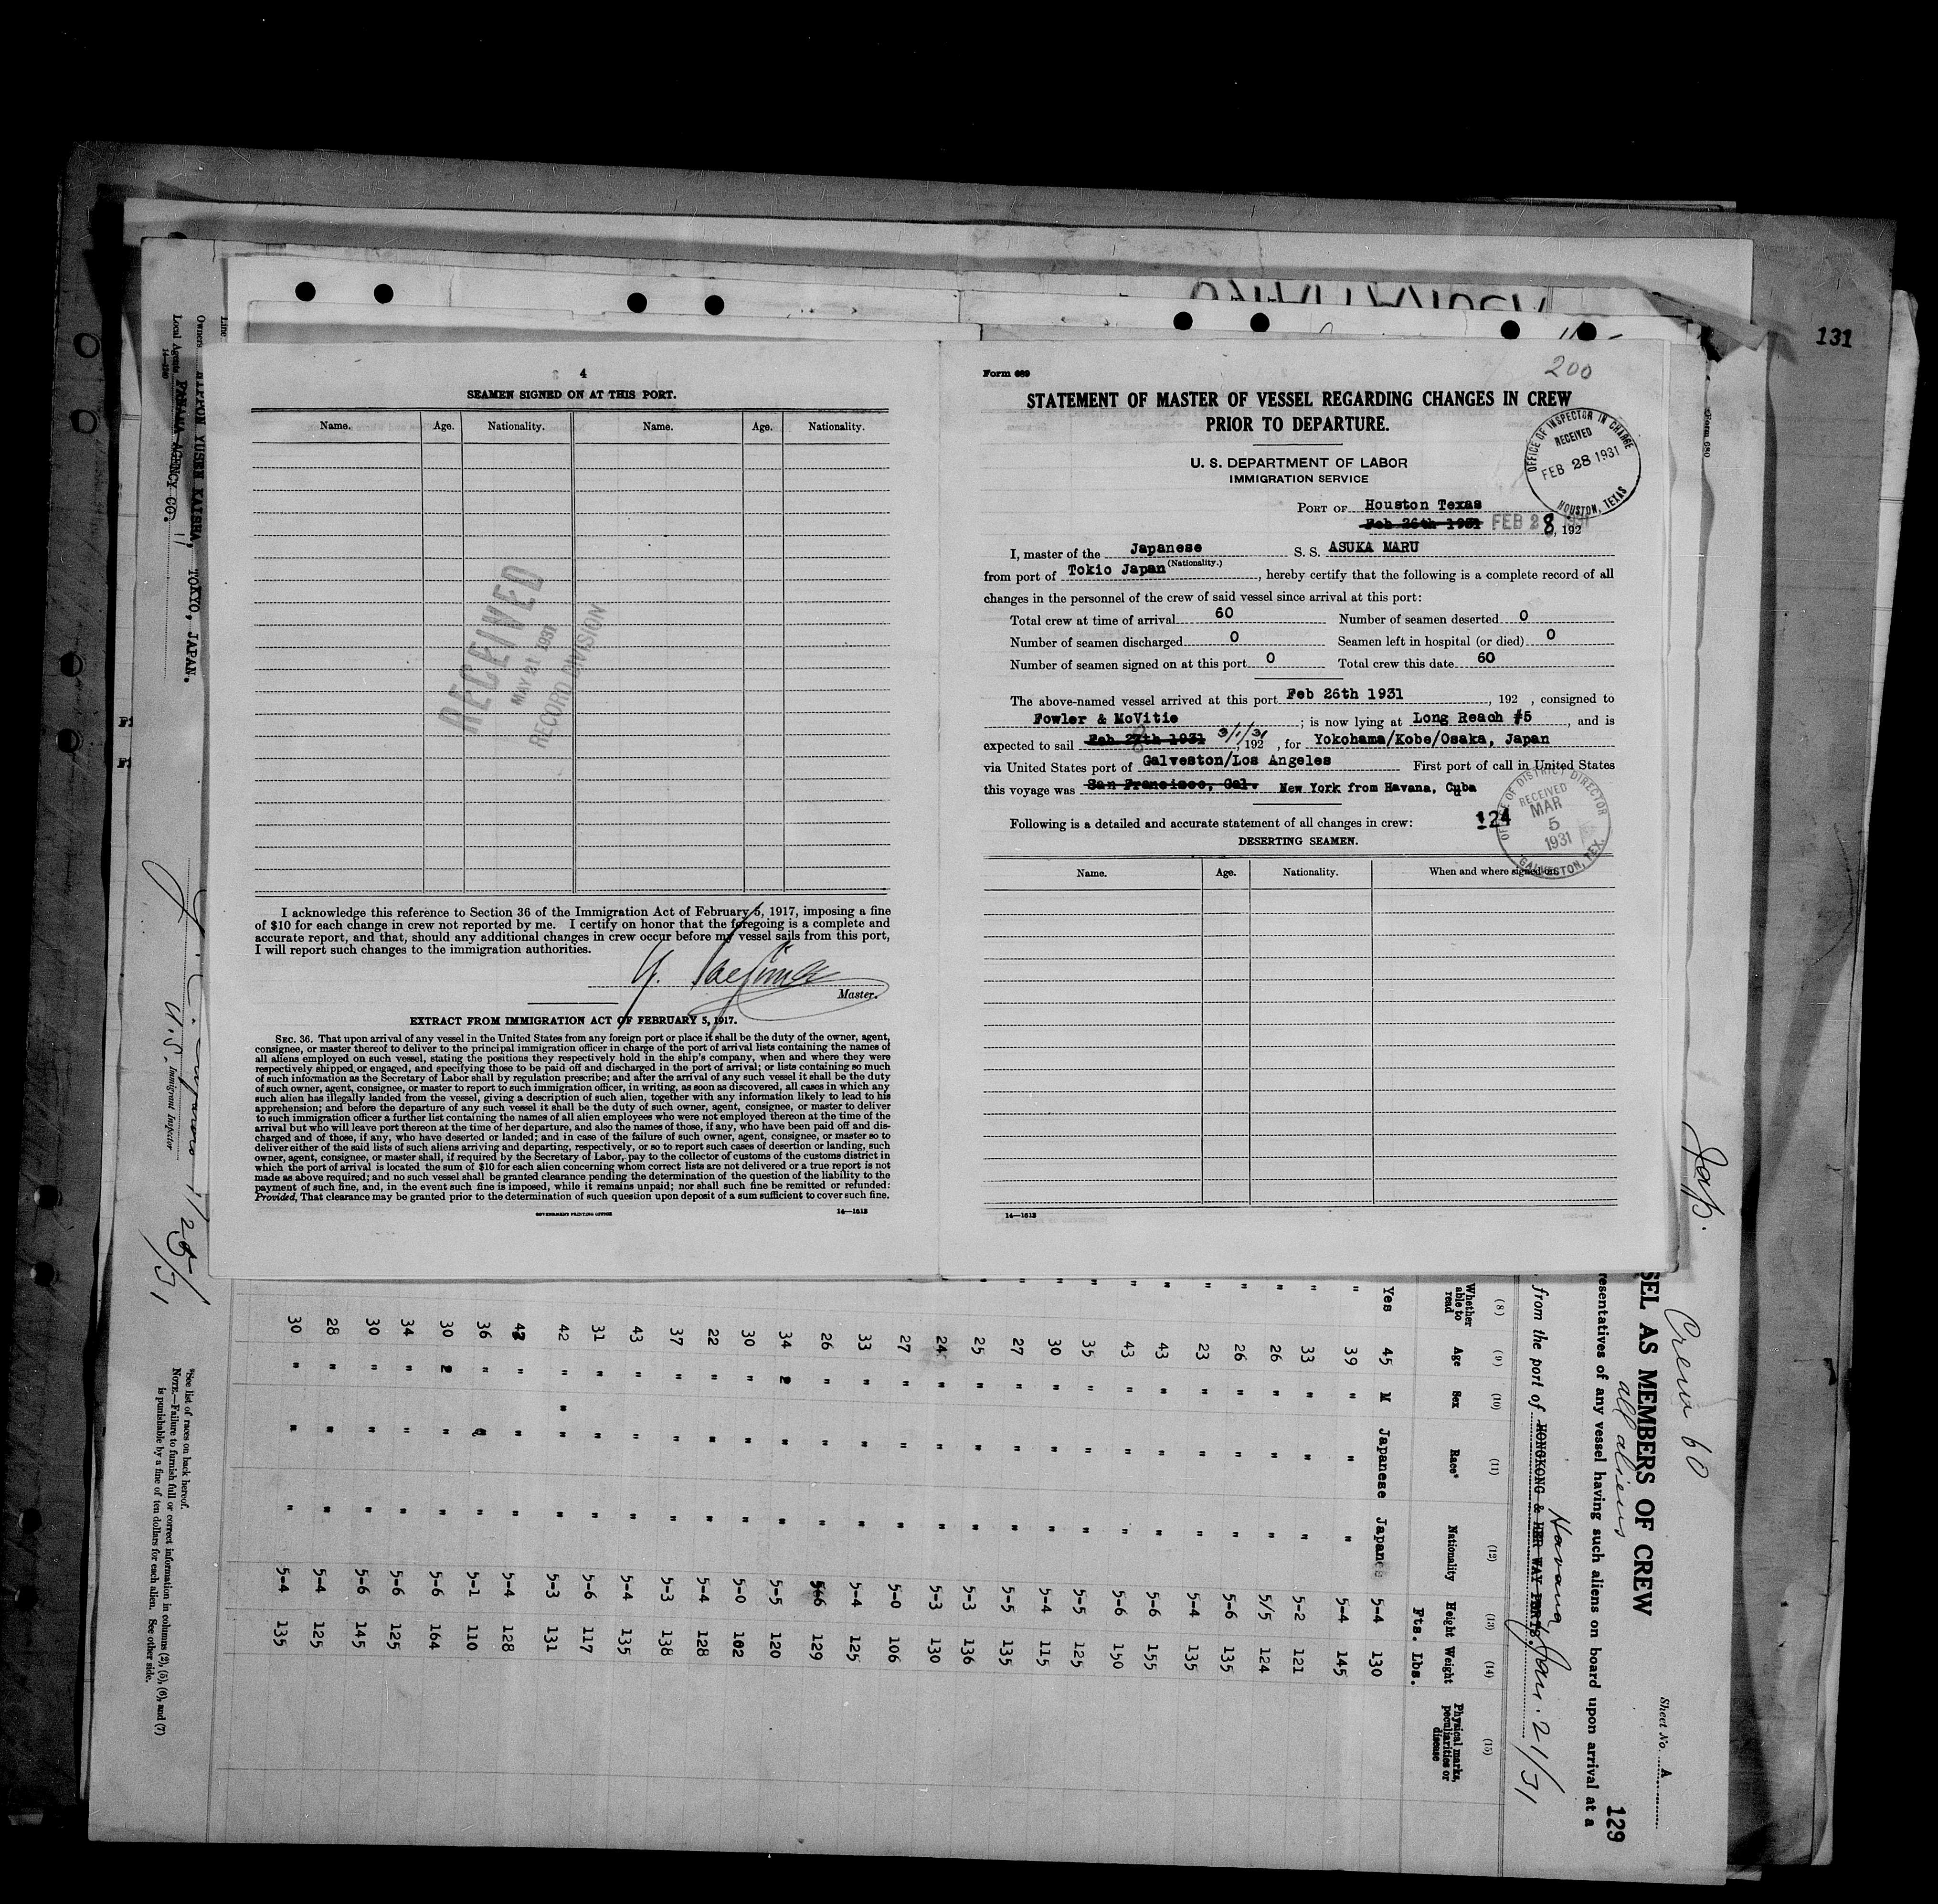 131
4
SEAMEN SIGNED ON AT THIS PORT.
Name. Age. Nationality. Name. Age. Nationality.
RECEIVED
MAY 21 1931
RECORD DIVISION
I acknowledge this reference to Section 36 of the Immigration Act of February 5, 1917, imposing a fine
of $10 for each change in crew not reported by me. I certify on honor that the foregoing is a complete and
accurate report, and that, should any additional changes in crew occur before my vessel sails from this port,
I will report such changes to the immigration authorities.
Master.
EXTRACT FROM IMMIGRATION ACT OF FEBRUARY 5, 1917.
SEC. 36. That upon arrival of any vessel in the United States from any foreign port or place it shall be the duty of the owner, agent,
consignee, or master thereof to deliver to the principal immigration officer in charge of the port of arrival lists containing the names of
all aliens employed on such vessel, stating the positions they respectively hold in the ship's company, when and where they were
respectively shipped or engaged, and specifying those to be paid off and discharged in the port of arrival; or lists containing so much
of such information as the Secretary of Labor shall by regulation prescribe; and after the arrival of any such vessel it shall be the duty
of such owner, agent, consignee, or master to report to such immigration officer, in writing, as soon as discovered, all cases in which any
such alien has illegally landed from the vessel, giving a description of such alien, together with any information likely to lead to his
apprehension; and before the departure of any such vessel it shall be the duty of such owner, agent, consignee, or master to deliver
to such immigration officer a further list containing the names of all alien employees who were not employed thereon at the time of the
arrival but who will leave port thereon at the time of her departure, and also the names of those, if any, who have been paid off and dis-
charged and of those, if any, who have deserted or landed; and in case of the failure of such owner, agent, consignee, or master so to
deliver either of the said lists of such aliens arriving and departing, respectively, or so to report such cases of desertion or landing, such
owner, agent, consignee, or master shall, if required by the Secretary of Labor, pay to the collector of customs of the customs district in
which the port of arrival is located the sum of $10 for each alien concerning whom correct lists are not delivered or a true report is not
made as above required; and no such vessel shall be granted clearance pending the determination of the question of the liability to the
payment of such fine, and, in the event such fine is imposed, while it remains unpaid; nor shall such fine be remitted or refunded:
Provided, That clearance may be granted prior to the determination of such question upon deposit of a sum sufficient to cover such fine.
GOVERNMENT PRINTING OFFICE 14—1613
Form 689
200
STATEMENT OF MASTER OF VESSEL REGARDING CHANGES IN CREW
PRIOR TO DEPARTURE.
OFFICE OF INSPECTOR IN CHARGE
RECEIVED
FEB 28 1931
HOUSTON, TEXAS
U. S. DEPARTMENT OF LABOR
IMMIGRATION SERVICE
PORT OF Houston Texas
Feb 26th 1931 FEB 28 1931, 192
I, master of the Japanese S. S. ASUKA MARU
(Nationality.)
from port of Tokio Japan, hereby certify that the following is a complete record of all
changes in the personnel of the crew of said vessel since arrival at this port:
Total crew at time of arrival 60 Number of seamen deserted 0
Number of seamen discharged 0 Seamen left in hospital (or died) 0
Number of seamen signed on at this port 0 Total crew this date 60
The above-named vessel arrived at this port Feb 26th 1931, 192 , consigned to
Fowler & McVitie ; is now lying at Long Reach #5, and is
expected to sail Feb 27th 1931 3/1/31, 192 , for Yokohama/Kobe/Osaka, Japan
via United States port of Galveston/Los Angeles First port of call in United States
this voyage was San Francisco, Cal. New York from Havana, Cuba
Following is a detailed and accurate statement of all changes in crew: 124
OFFICE OF DISTRICT DIRECTOR
RECEIVED
MAR
5
1931
GALVESTON, TEX.
DESERTING SEAMEN.
Name. Age. Nationality. When and where signed on.
14—1613
Form 680
Jap.
Crew 60
all aliens
Sheet No. A
129
SEL AS MEMBERS OF CREW
resentatives of any vessel having such aliens on board upon arrival at a
from the port of HONGKONG & HER WAY PORTS. Havana, Jan. 21/31
(8) (9) (10) (11) (12) (13) (14) (15)
Whether able to read Age Sex Race* Nationality Height Weight Physical marks, peculiarities or disease
Fts. Lbs.
Yes 45 M Japanese Japanese 5-4 130
" 39 " " " 5-4 145
" 33 " " " 5-2 121
" 26 " " " 5/5 124
" 26 " " " 5-6 135
" 23 " " " 5-4 135
" 43 " " " 5-6 155
" 43 " " " 5-6 150
" 35 " " " 5-5 125
" 30 " " " 5-4 115
27 " " " 5-5 135
25 " " " 5-3 136
24 " " " 5-3 130
27 " " " 5-0 106
33 " " " 5-4 125
26 " " " 5-6 129
34 " " " 5-5 120
30 " " " 5-0 102
22 " " " 5-4 128
37 " " " 5-3 138
43 " " " 5-4 135
31 " " " 5-6 117
42 " " " 5-3 131
" " " 5-4 128
36 " " " 5-1 110
30 " " " 5-6 164
34 " " " 5-6 125
30 " " " 5-6 145
28 " " " 5-4 125
30 " " " 5-4 135
*See list of races on back hereof.
NOTE.—Failure to furnish full or correct information in columns (2), (5), (6), and (7)
is punishable by a fine of ten dollars for each alien. See other side.
Line
Owners NIPPON YUSEN KAISHA, TOKYO, JAPAN.
Local Agents PANAMA AGENCY CO.
14—1240
U.S. Immigrant Inspector
1/25/31